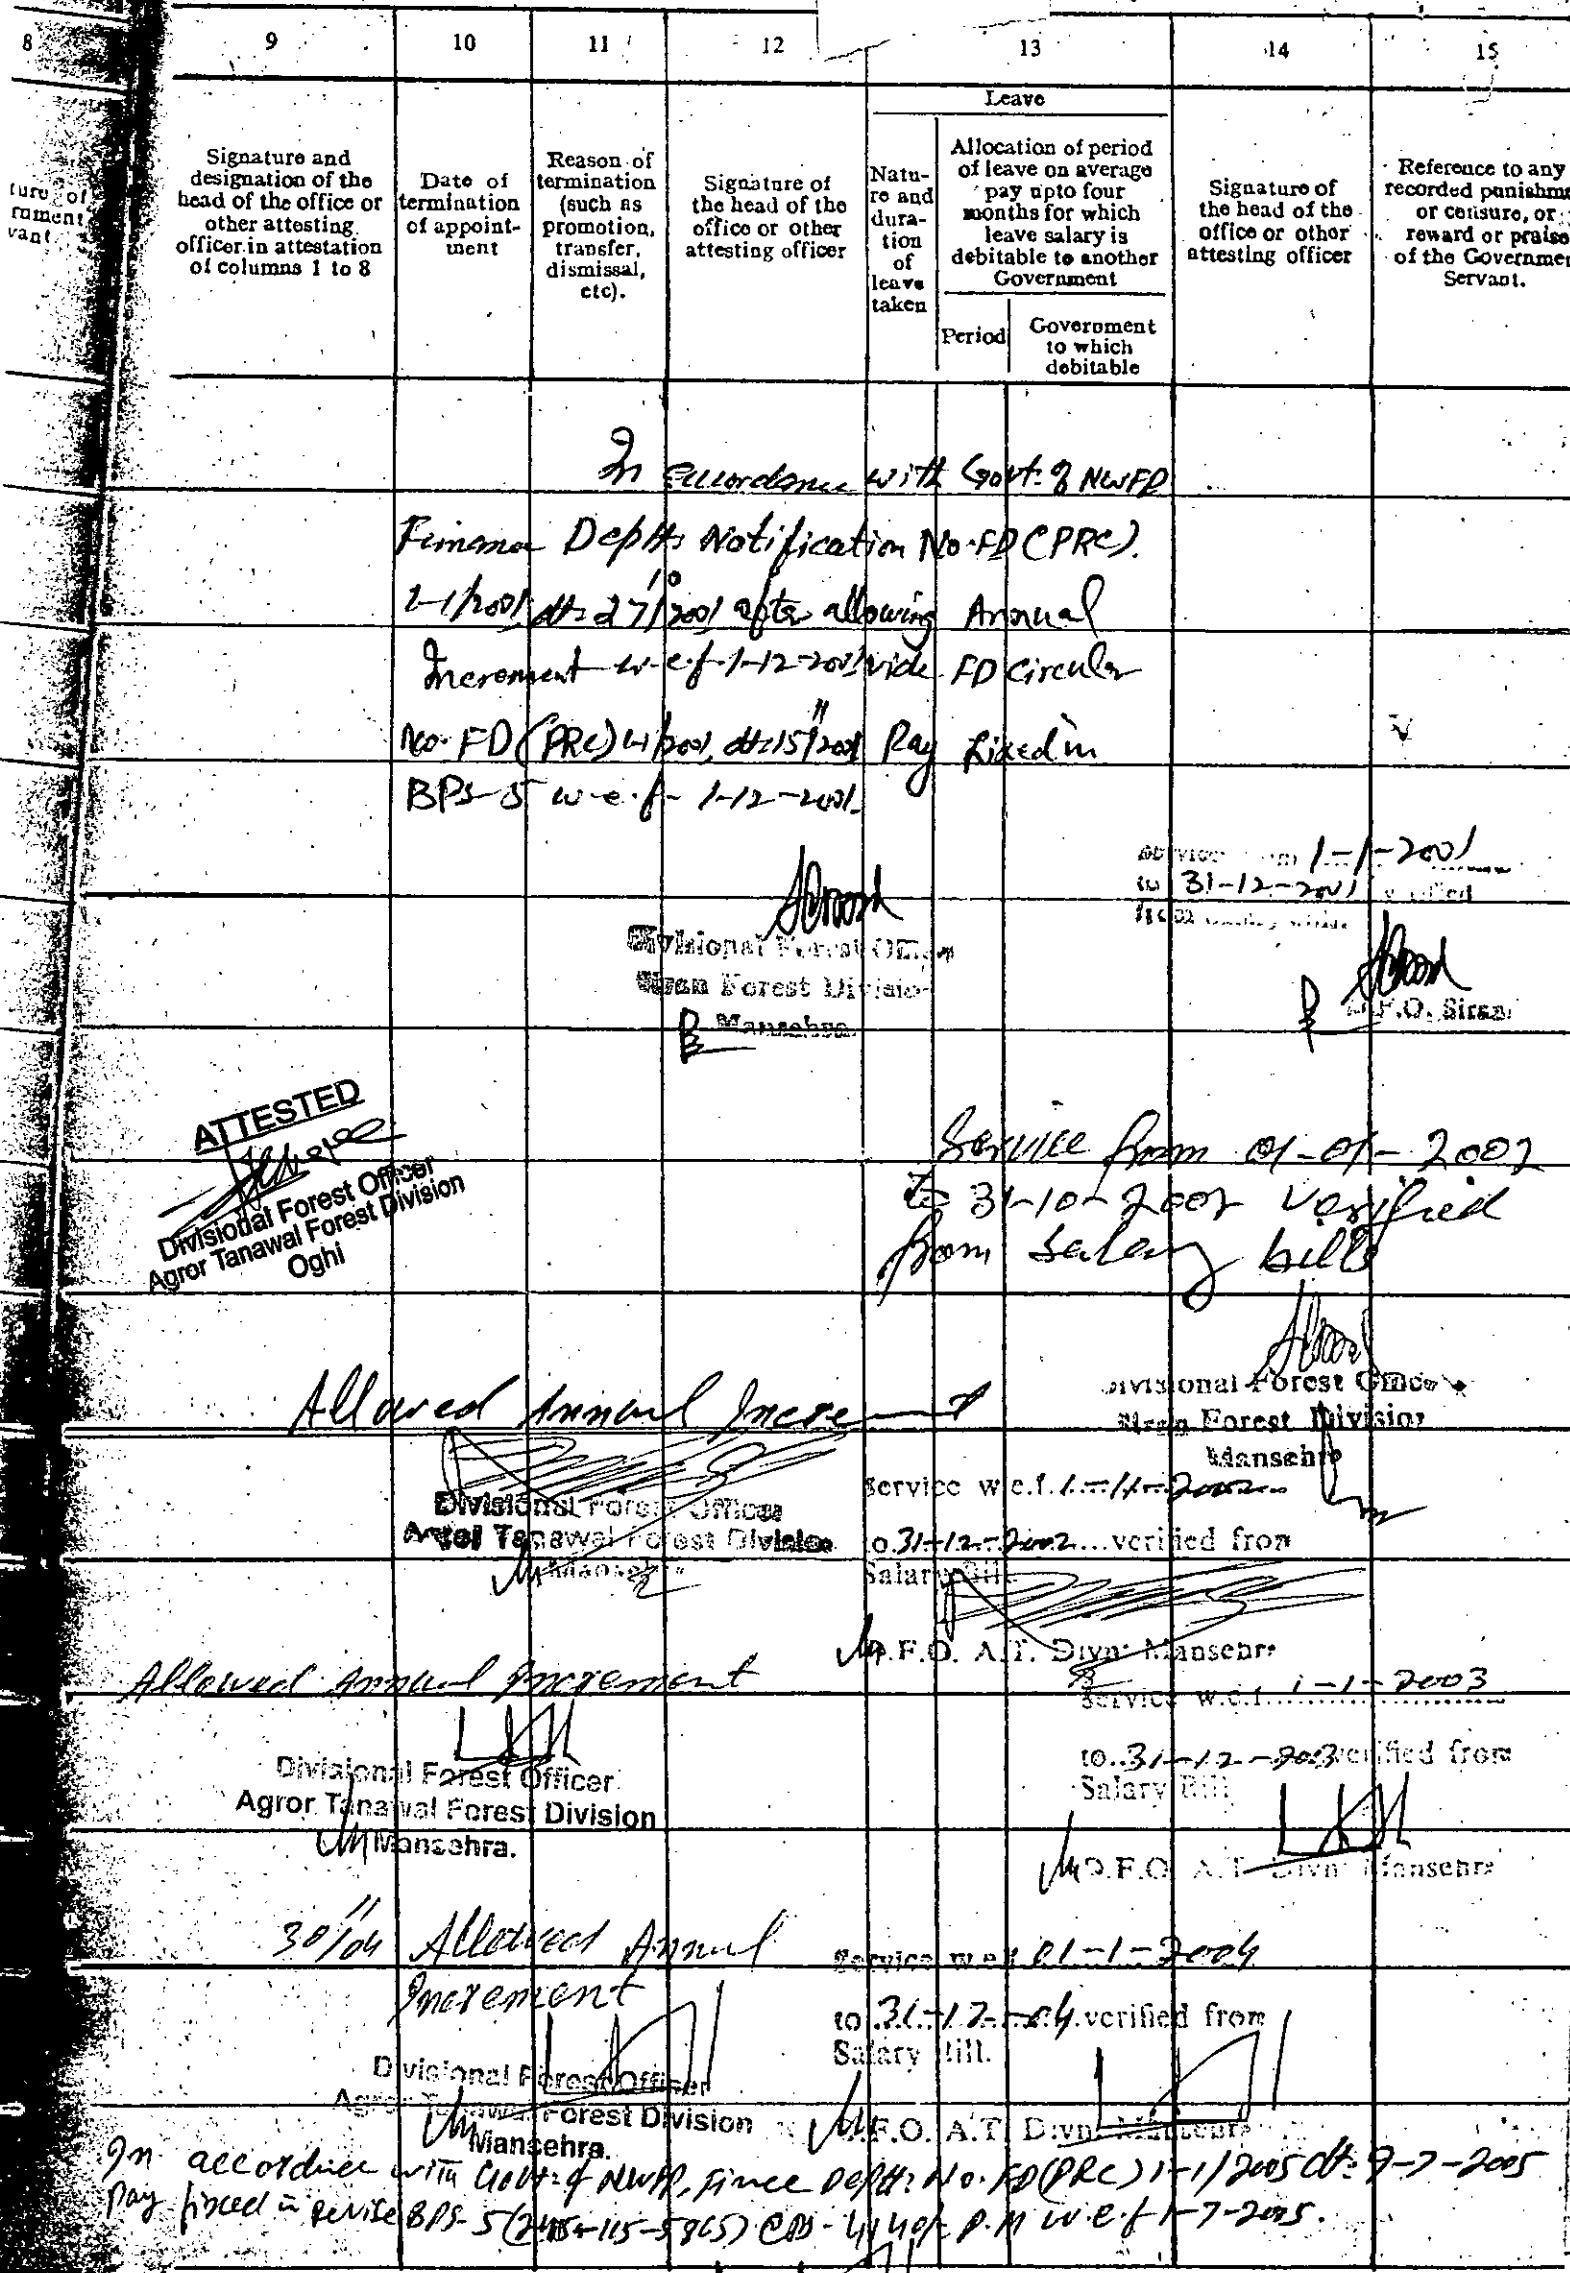 8 9 10 11 12 13 14 15
ture of
rnment
vant
Signature and
designation of the
head of the office or
other attesting
officer in attestation
of columns 1 to 8
Date of
termination
of appoint-
ment
Reason of
termination
(such as
promotion,
transfer,
dismissal,
etc).
Signature of
the head of the
office or other
attesting officer
Leave
Natu-
re and
dura-
tion
of
leave
taken
Allocation of period
of leave on average
pay upto four
months for which
leave salary is
debitable to another
Government
Period
Government
to which
debitable
Signature of
the head of the
office or other
attesting officer
Reference to any
recorded punishme
or censure, or
reward or praise
of the Governmen
Servant.
In accordance with Govt: of NWFP
Finance Deptt: Notification No. FD (PRC).
1-1/2001 dt: 27/10/2001 after allowing Annual
Increment w.e.f. 1-12-2001 vide FD Circular
No. FD (PRC) 1-1/2001, dt: 15/11/2001 Pay Fixed in
BPS-5 w.e.f- 1-12-2001.
Divisional Forest Officer
Siran Forest Division
Mansehra
Service from 1-1-2001
to 31-12-2001 verified
D.F.O. Siran
ATTESTED
Divisional Forest Officer
Agror Tanawal Forest Division
Oghi
Service from 01-01-2002
to 31-10-2002 verified
from Salary bills
Divisional Forest Officer
Siran Forest Division
Mansehra
Allowed Annual Increment
Divisional Forest Officer
Agror Tanawal Forest Division
Mansehra
Service w.e.f. 1-11-2002
to 31-12-2002 verified from
Salary Bill.
D.F.O. A.T. Divn: Mansehra
Allowed Annual Increment
Divisional Forest Officer
Agror Tanawal Forest Division
Mansehra.
Service w.e.f. 1-1-2003
to 31-12-2003 verified from
Salary Bill
D.F.O. A.T. Divn: Mansehra
30/11/04 Allowed Annual
Increment
Divisional Forest Officer
Agror Tanawal Forest Division
Mansehra.
Service w.e.f 01-1-2004
to 31-12-04 verified from
Salary Bill.
D.F.O. A.T. Divn: Mansehra
In accordnce with Govt: of NWFP, Fince Deptt: No. FD (PRC) 1-1/2005 dt: 9-7-2005
Pay fixed in Revise BPS-5 (2415-115-5865) @ Rs- 4140/- P.M w.e.f 1-7-2005.